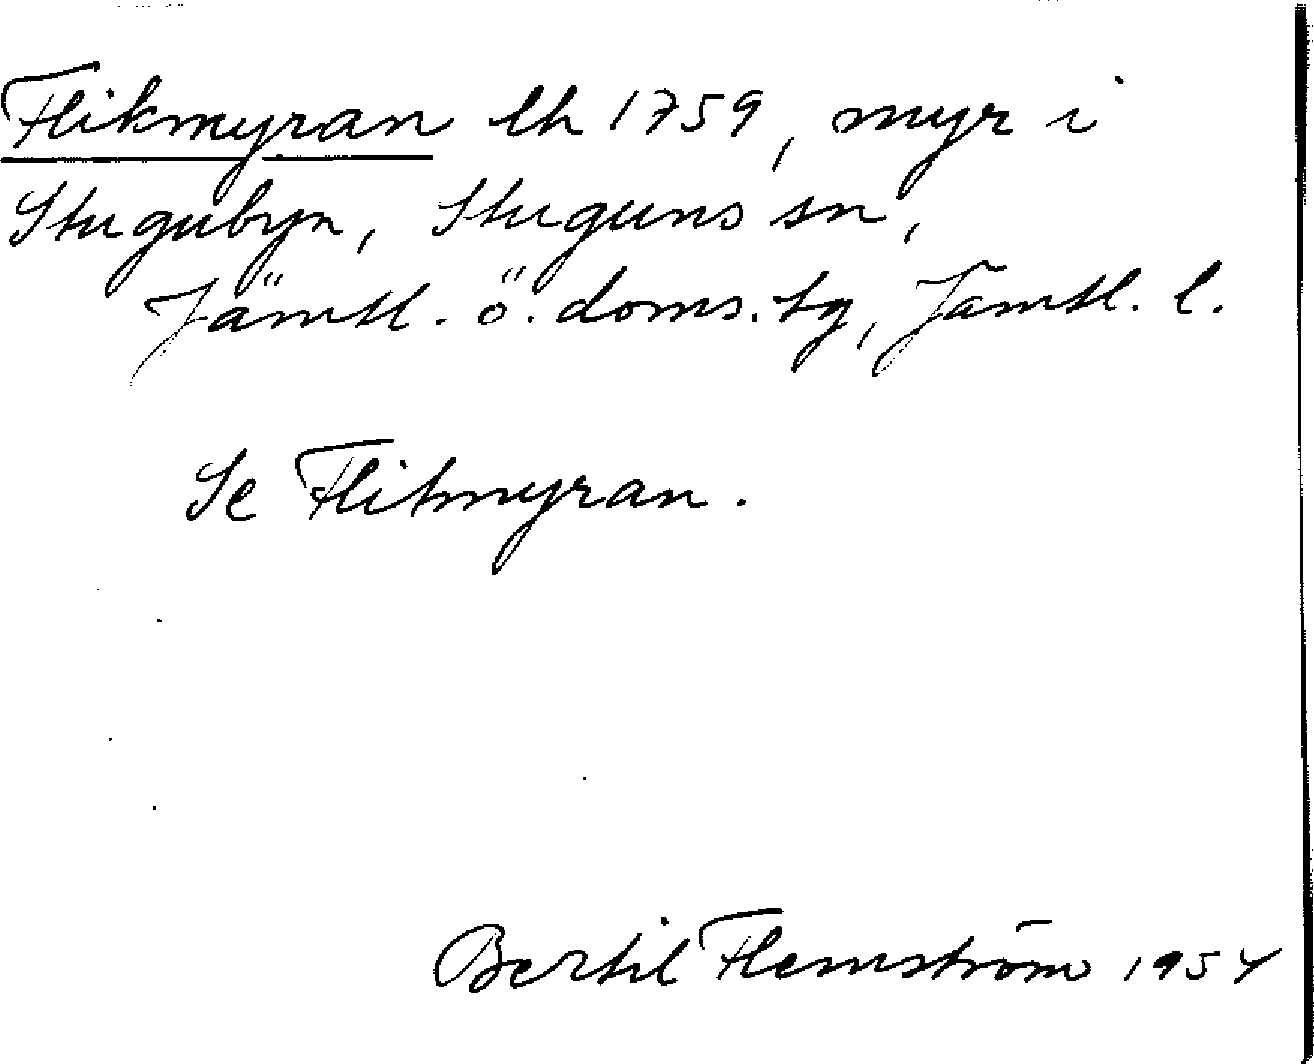 Flikmyran lh 1759, myr i
Stugubyn, Stuguns sn,
Jämtl. ö. doms.tg, Jämtl. l.
Se Flikmyran.
Bertil Flemström 1954